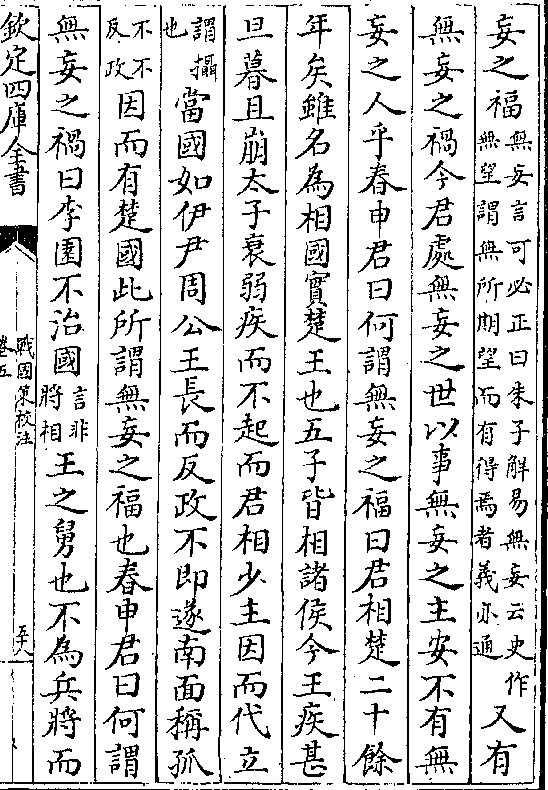 妄之福無妄言可必正曰朱子解易無妄云史作
無望謂無所期望而有得焉者義亦通又有
無妄之禍今君處無妄之世以事無妄之主安不有無
妄之人乎春申君曰何謂無妄之福曰君相楚二十餘
年矣雖名為相國實楚王也五子皆相諸侯今王疾甚
旦暮且崩太子衰弱疾而不起而君相少主因而代立
謂攝
也當國如伊尹周公王長而反政不即遂南面稱孤
不不
反政因而有楚國此所謂無妄之福也春申君曰何謂
無妄之禍曰李園不治國言非
將相王之舅也不為兵將而
欽定四庫全書
戰國策校注
卷五
至六